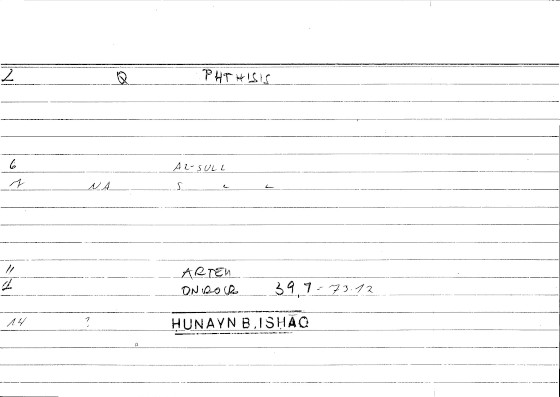 2 Q PHTHISIS
6 AL-SULL
7 NA S L L
11 ARTEM
1 ONIROCR 39,7 - 73.12
14 ? HUNAYN B. ISHAQ